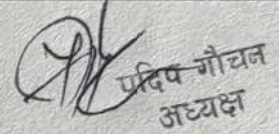 प्रदिप गौचन
अध्यक्ष